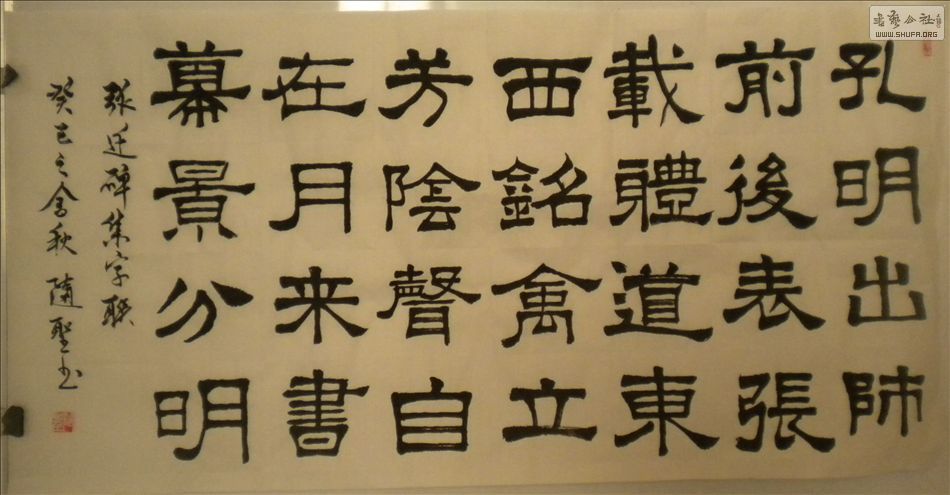 孔明出師
前後表張
載體道東
西銘禽立
芳陰聲自
在月来書
幕景分明
张迁碑集字联
癸巳之秋 随聖书
书艺公社
WWW.SHUFA.ORG